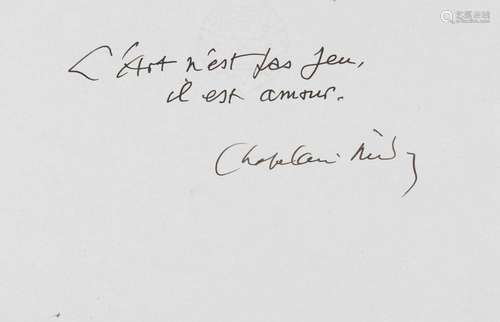 L'Art n'est pas jeu,
il est amour.
Chapelain Midy